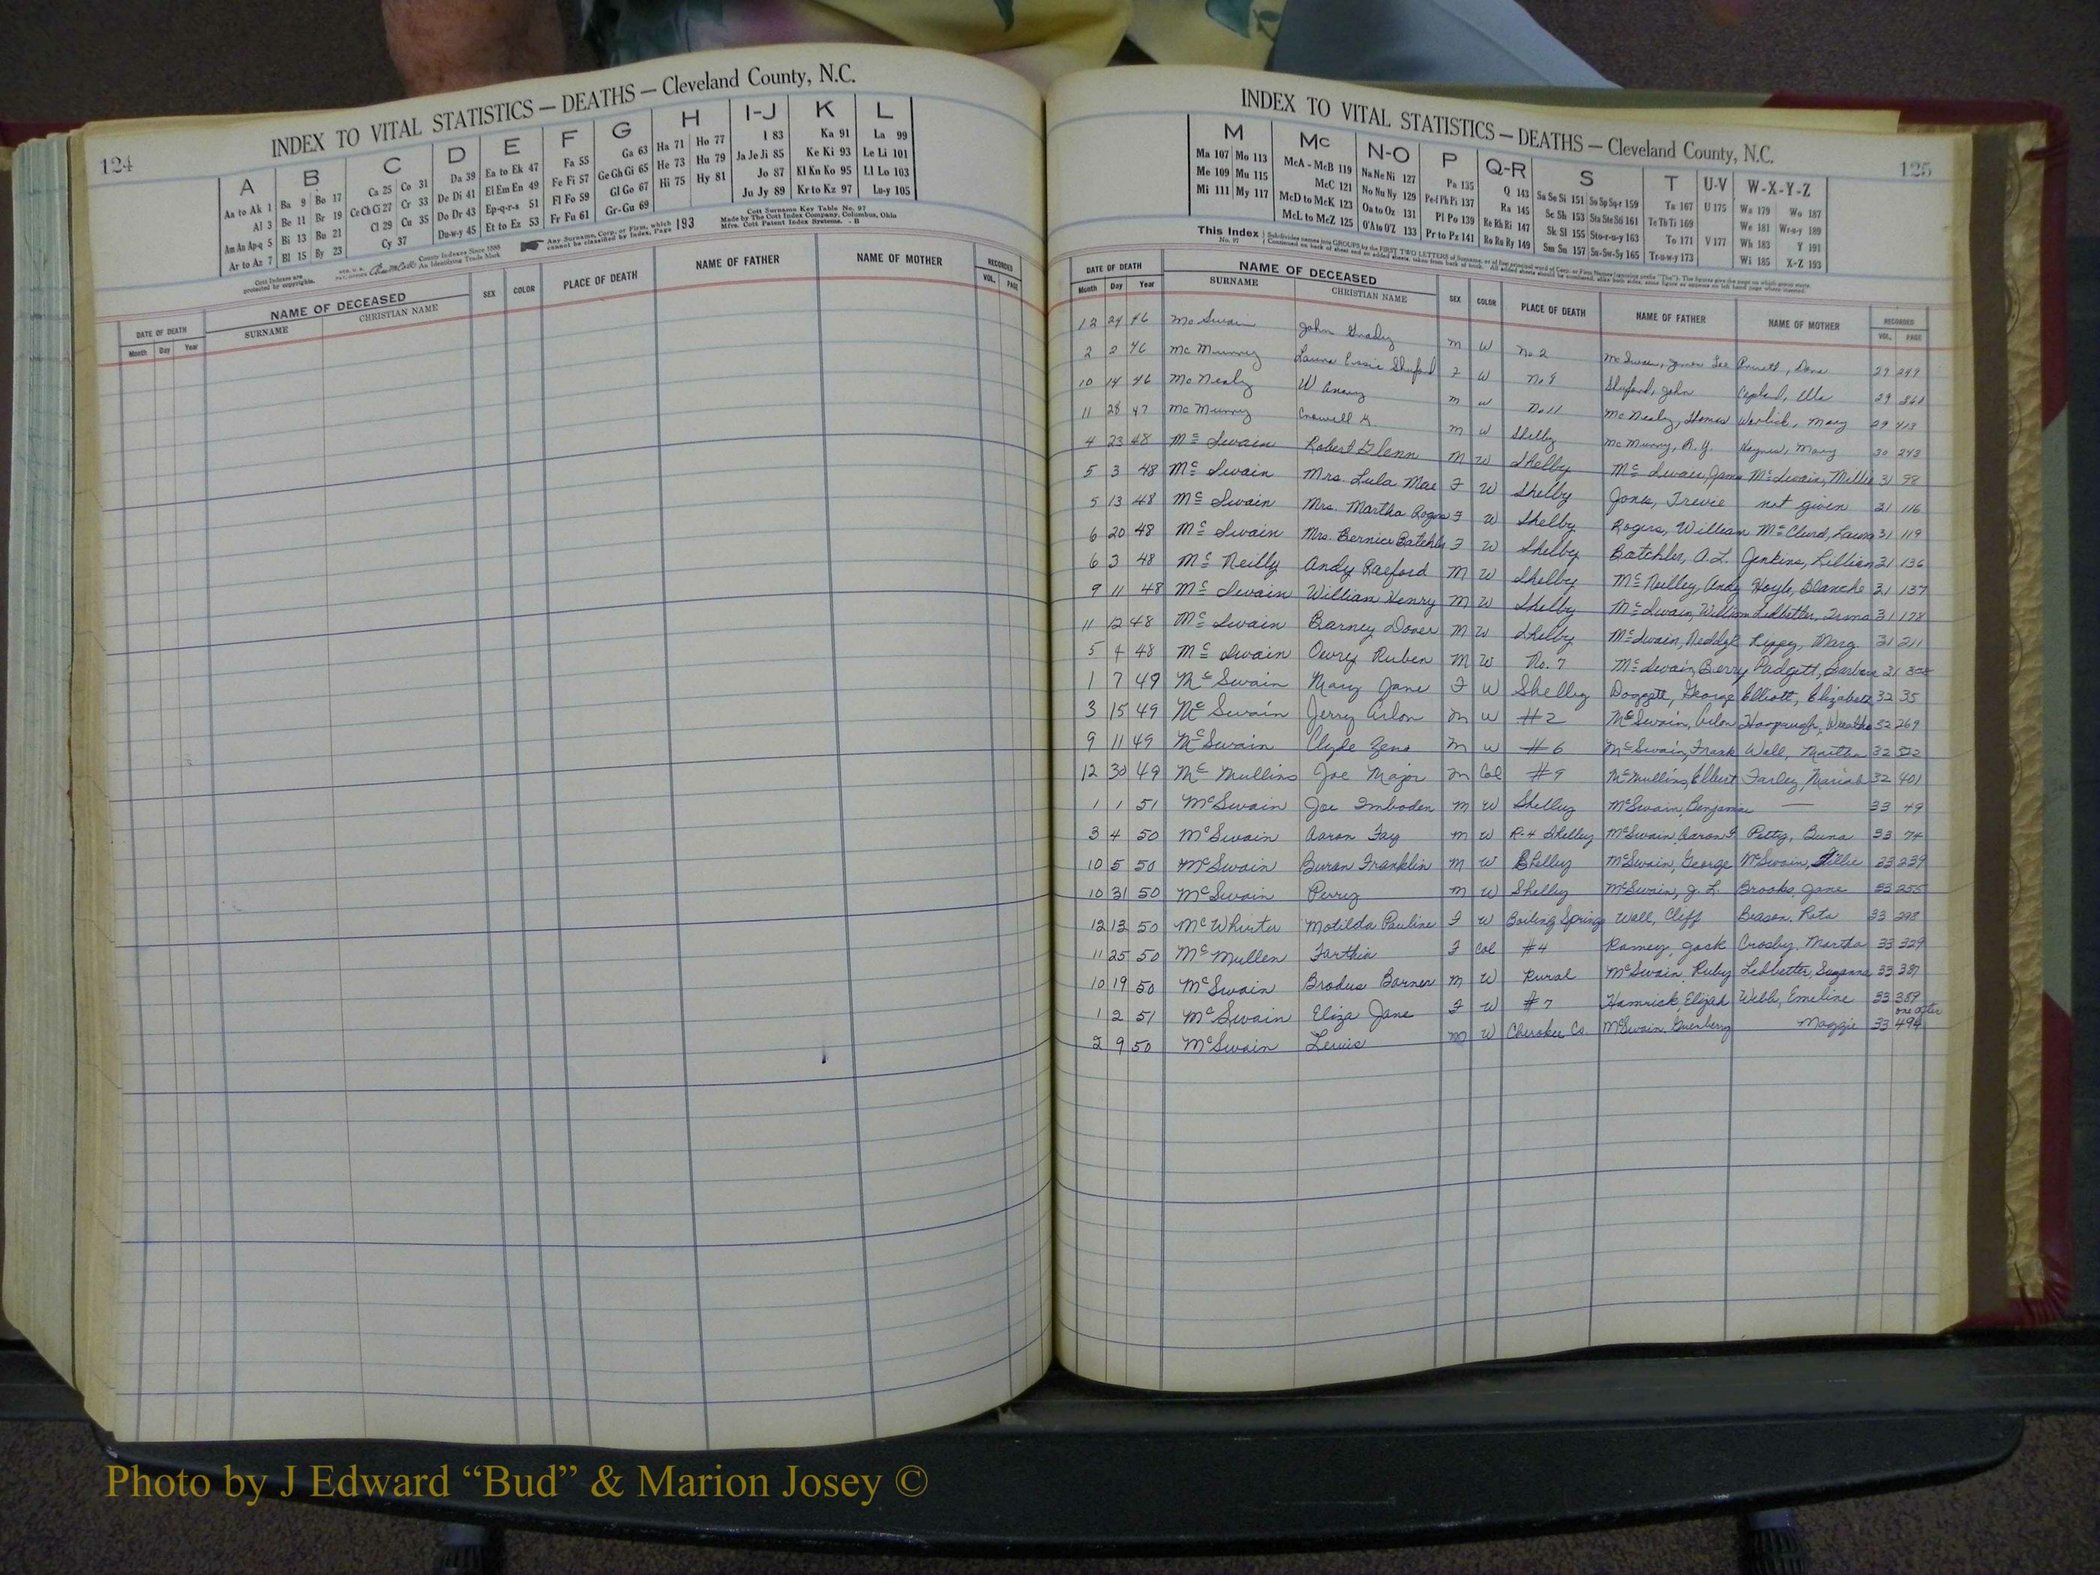 124
INDEX TO VITAL STATISTICS — DEATHS — Cleveland County, N.C.
A B C D E F G H I-J K L
Aa to Ak 1 Ba 9 Bo 17 Ca 25 Co 31 Da 39 Ea to Ek 47 Fa 55 Ga 63 Ha 71 Ho 77 I 83 Ka 91 La 99
Al 3 Be 11 Br 19 Ce Ch Ci 27 Cr 33 De Di 41 El Em En 49 Fe Fi 57 Ge Gh Gi 65 He 73 Hu 79 Ja Je Ji 85 Ke Ki 93 Le Li 101
Am An Ap-q 5 Bi 13 Bu 21 Cl 29 Cu 35 Do Dr 43 Ep-q-r-s 51 Fl Fo 59 Gl Go 67 Hi 75 Hy 81 Jo 87 Kl Kn Ko 95 Ll Lo 103
Ar to Az 7 Bl 15 By 23 Cy 37 Du-w-y 45 Et to Ez 53 Fr Fu 61 Gr-Gu 69 Ju Jy 89 Kr to Kz 97 Lu-y 105
Cott Indexes are protected by copyrights. County Indexes Since 1888 An Identifying Trade Mark
Any Surname, Corp. or Firm, which cannot be classified by Index, Page 193
Cott Surname Key Table No. 97
Made by The Cott Index Company, Columbus, Ohio
Mfrs. Cott Patent Index Systems. - B
DATE OF DEATH NAME OF DECEASED SEX COLOR PLACE OF DEATH NAME OF FATHER NAME OF MOTHER RECORDED
Month Day Year SURNAME CHRISTIAN NAME VOL. PAGE
125
INDEX TO VITAL STATISTICS — DEATHS — Cleveland County, N.C.
M Mc N-O P Q-R S T U-V W-X-Y-Z
Ma 107 Mo 113 McA - McB 119 Na Ne Ni 127 Pa 135 Q 143 Sa Se Si 151 So Sp Sq-r 159 Ta 167 U 175 Wa 179 Wo 187
Me 109 Mu 115 McC 121 No Nu Ny 129 Pe-f Ph Pi 137 Ra 145 Sc Sh 153 Sta Ste Sti 161 Te Th Ti 169 We 181 Wr-u-y 189
Mi 111 My 117 McD to McK 123 Oa to Oz 131 Pl Po 139 Re Rh Ri 147 Sk Sl 155 Sto-r-u-y 163 To 171 V 177 Wh 183 Y 191
McL to McZ 125 O'A to O'Z 133 Pr to Pz 141 Ro Ru Ry 149 Sm Sn 157 Su-Sw-Sy 165 Tr-u-w-y 173 Wi 185 X-Z 193
This Index No. 97
DATE OF DEATH NAME OF DECEASED SEX COLOR PLACE OF DEATH NAME OF FATHER NAME OF MOTHER RECORDED
Month Day Year SURNAME CHRISTIAN NAME VOL. PAGE
12 24 46 McSwain John Grady M W No. 2 McSwain, 29 249
2 2 46 McMurry Laura Essie Shuford F W No 9 Shuford, John Copland, Ella 29
10 14 46 McNealy W M W No. 11 McNealy, Thomas Warlick, Mary 29 413
11 28 47 McMurry Crowell G. M W Shelby McMurry, R. Y. Haynes, Mary 30 243
4 23 48 McSwain Robert Glenn M W Shelby McSwain, James McSwain, Millie 31 98
5 3 48 McSwain Mrs. Lula Mae F W Shelby Jones, Trevie not given 31 116
5 13 48 McSwain Mrs. Martha Rogers F W Shelby Rogers, William McClurd, Laura 31 119
6 20 48 McSwain Mrs. Bernice Batchler F W Shelby Batchler, A.L. Jenkins, Lillian 31 136
6 3 48 McNeilly Andy Raeford M W Shelby McNeilley, Andy Hoyle, Blanche 31 137
9 11 48 McSwain William Henry M W Shelby McSwain, William Ledbetter, 31 178
11 12 48 McSwain Barney Dover M W Shelby McSwain, Marg. 31 211
5 4 48 McSwain Ruben M W No. 7 McSwain, Berry Padgett, Barbara 31
1 7 49 McSwain Mary Jane F W Shelby Doggett, George Elliott, Elizabeth 32 35
3 15 49 McSwain Jerry Arlon M W #2 McSwain, Arlon 32 269
9 11 49 McSwain Clyde Zeno M W #6 McSwain, Frank Wall, Martha 32
12 30 49 McMullins Joe Major M Col #9 McMullins, Elbert Farley, Mariah 32 401
1 1 51 McSwain Joe Imboden M W Shelby McSwain, Benjamin — 33 49
3 4 50 McSwain Aaron Fay M W R-4 Shelby McSwain, Aaron F Petty, Buna 33 74
10 5 50 McSwain Buran Franklin M W Shelby McSwain, George McSwain, 33 239
10 31 50 McSwain Perry M W Shelby McSwain, J. L. Brooks, Jane 33 255
12 13 50 McWhirter Motilda Pauline F W Boiling Springs Wall, Cliff Beason, Rata 33 298
11 25 50 McMullen Farthia F Col #4 Ramey, Jack Crosby, Martha 33 329
10 19 50 McSwain Brodus Barner M W Rural McSwain, Ruby Ledbetter, Suzanna 33 387
1 2 51 McSwain Eliza Jane F W #7 Hamrick, Elijah Webb, Emeline 33 389
2 9 50 McSwain Lewis M W Cherokee Co. McSwain, Maggie 33 494 one after
Photo by J Edward “Bud” & Marion Josey ©